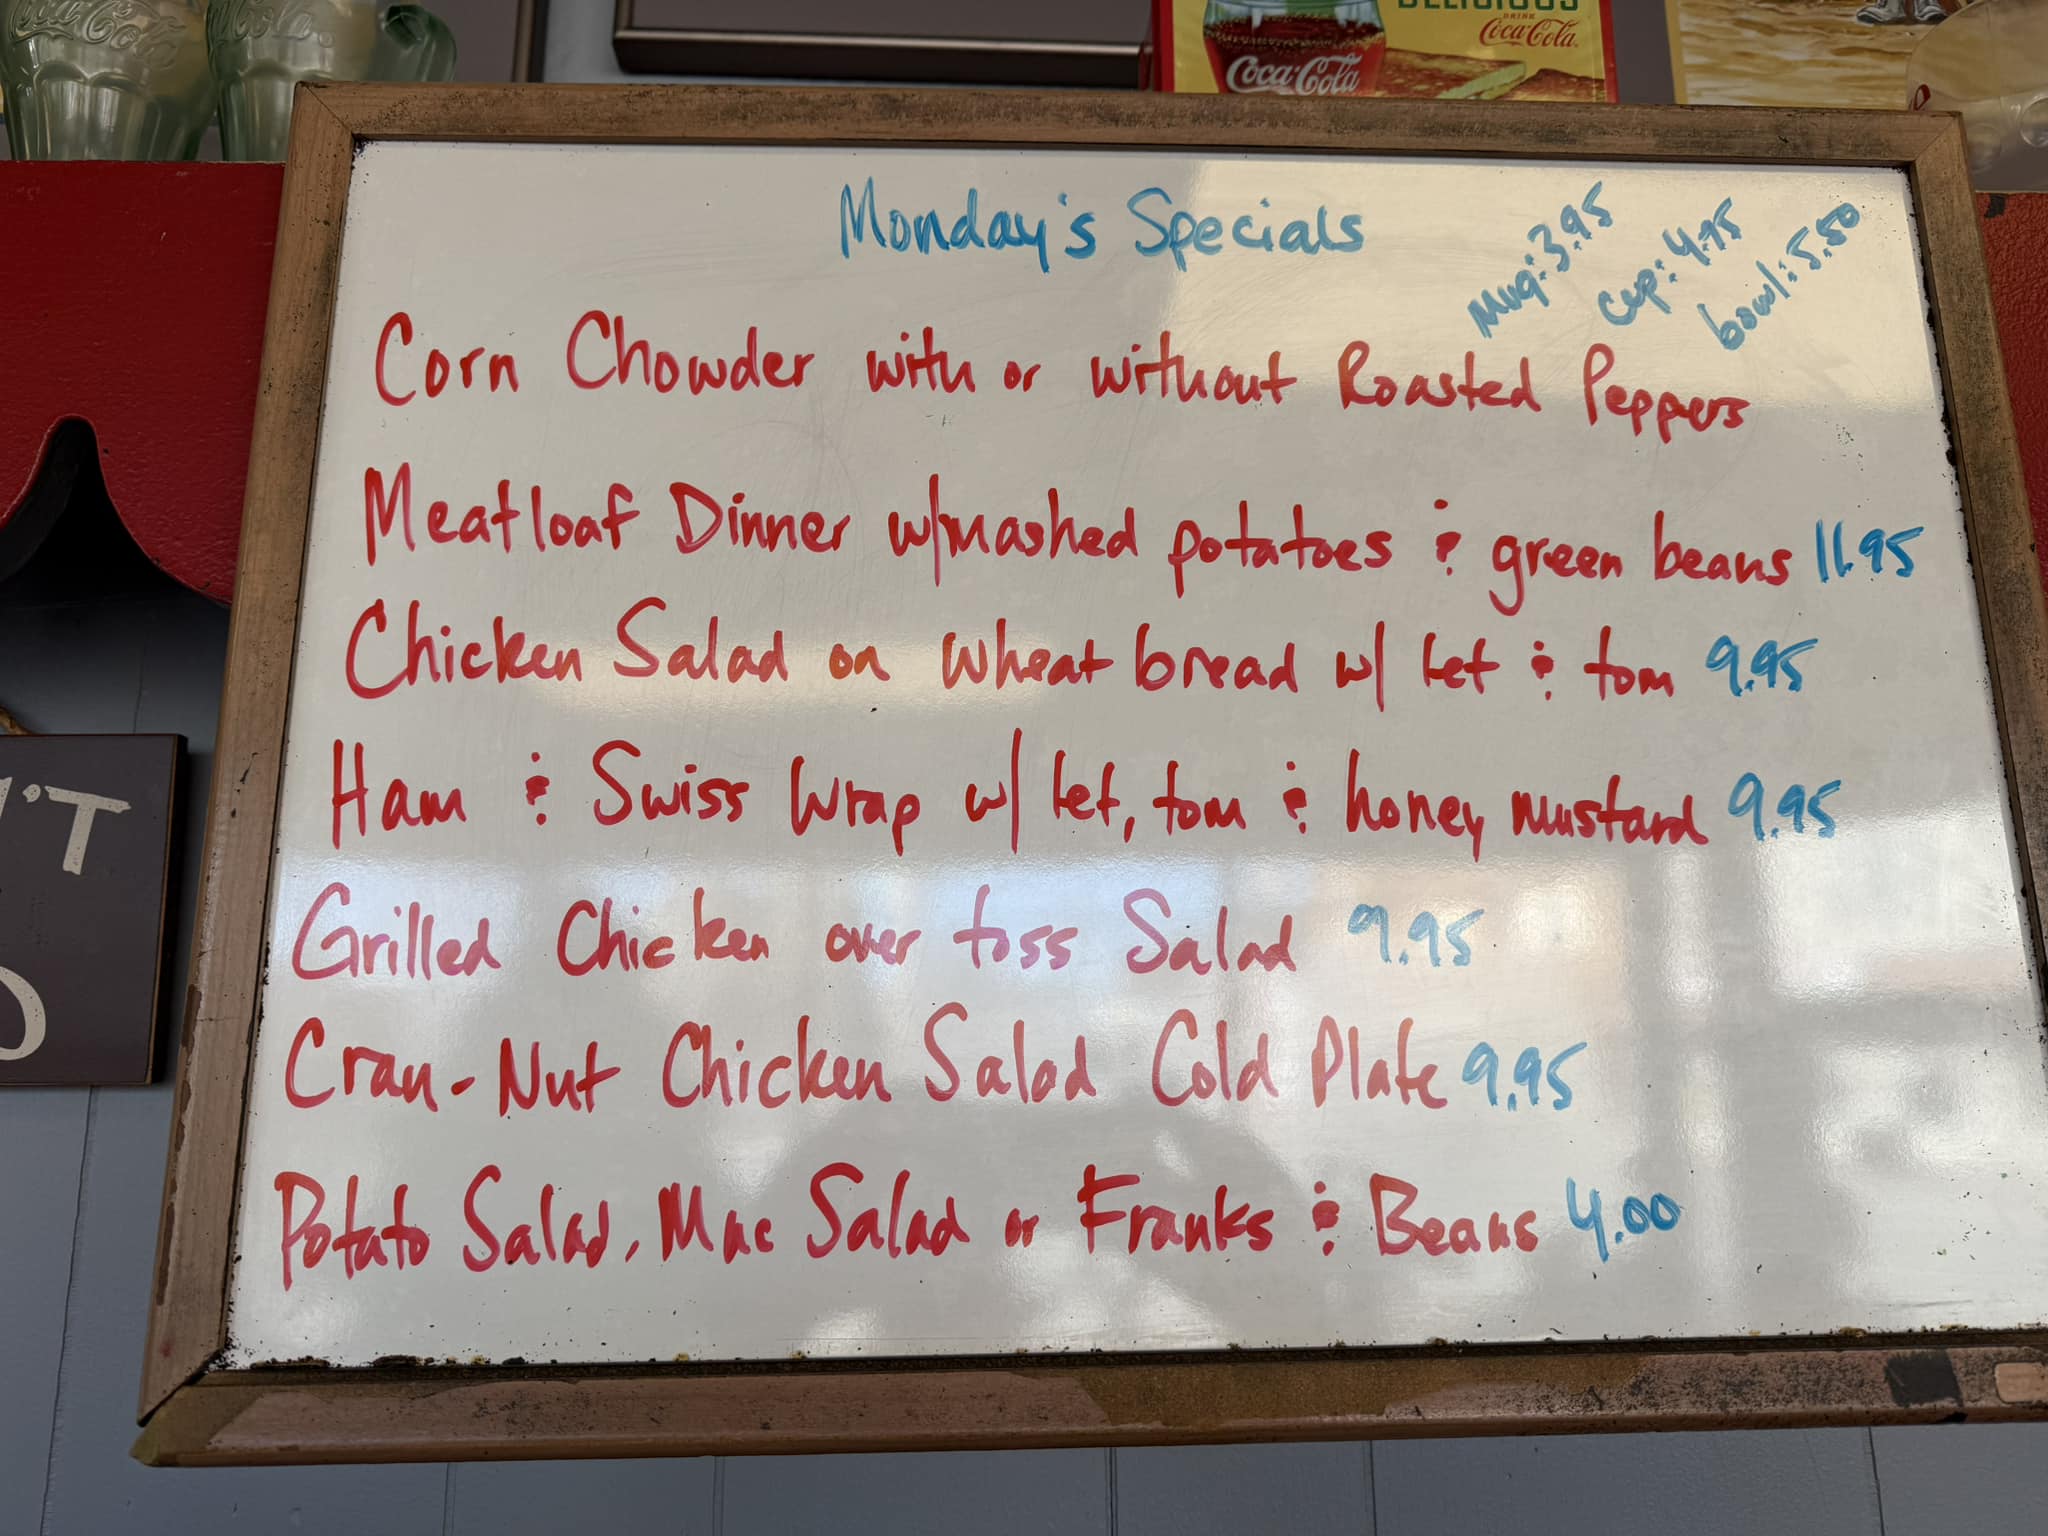 Coca-Cola
Coca-Cola
DELICIOUS
DRINK
Coca-Cola
Coca-Cola
Monday's Specials
Mug: 3.95
cup: 4.95
bowl: 5.50
Corn Chowder with or without Roasted Peppers
Meatloaf Dinner w/mashed potatoes & green beans 11.95
Chicken Salad on wheat bread w/ let & tom 9.95
Ham & Swiss Wrap w/ let, tom & honey mustard 9.95
Grilled Chicken over toss Salad 9.95
Cran-Nut Chicken Salad Cold Plate 9.95
Potato Salad, Mac Salad or Franks & Beans 4.00
'T